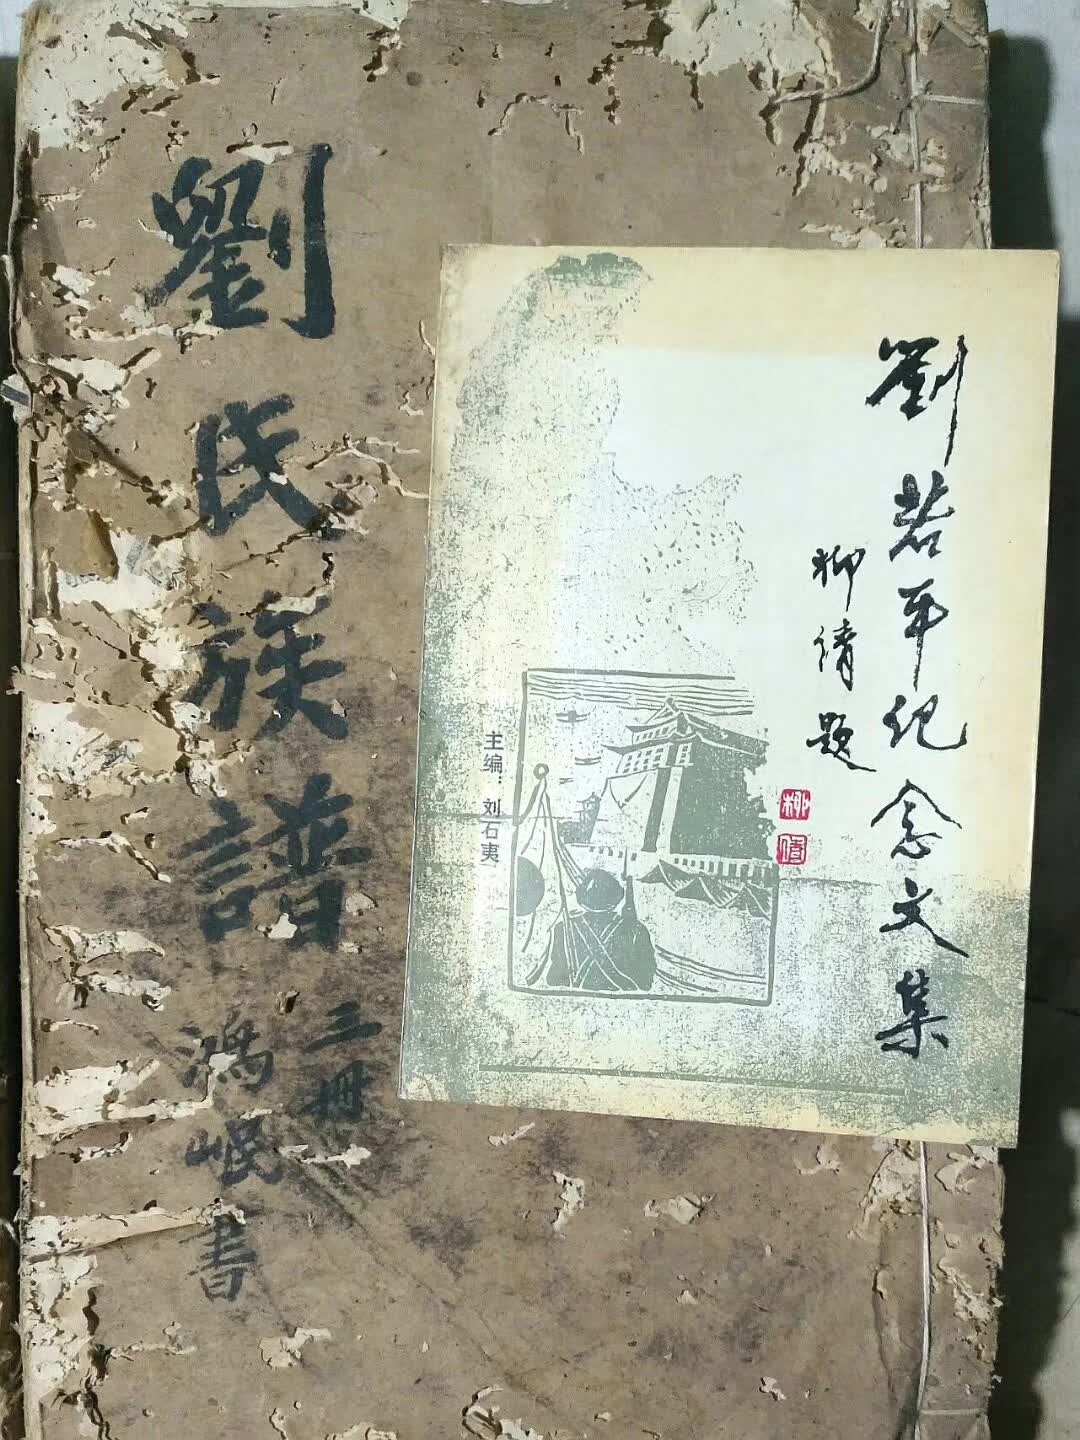 劉氏族譜
三冊
鴻岷書
劉若平纪念文集
柳倩題
柳倩
主编：刘石夷